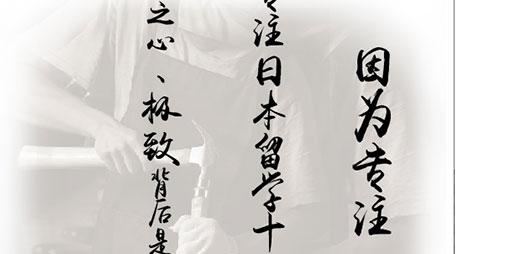 因为专注
专注日本留学十
之心、极致背后是